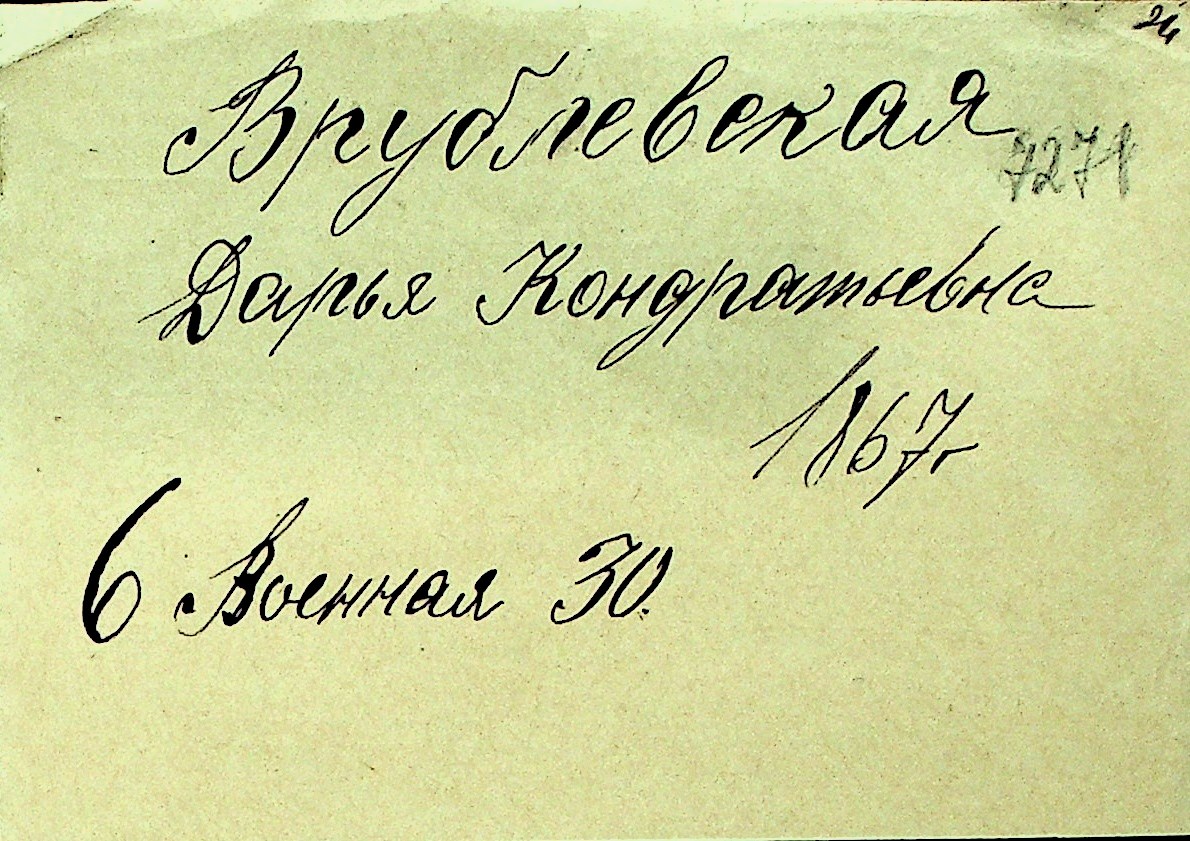 24
Врублевская
7271
Дарья Кондратьевна
1867г
6 Военная 30.